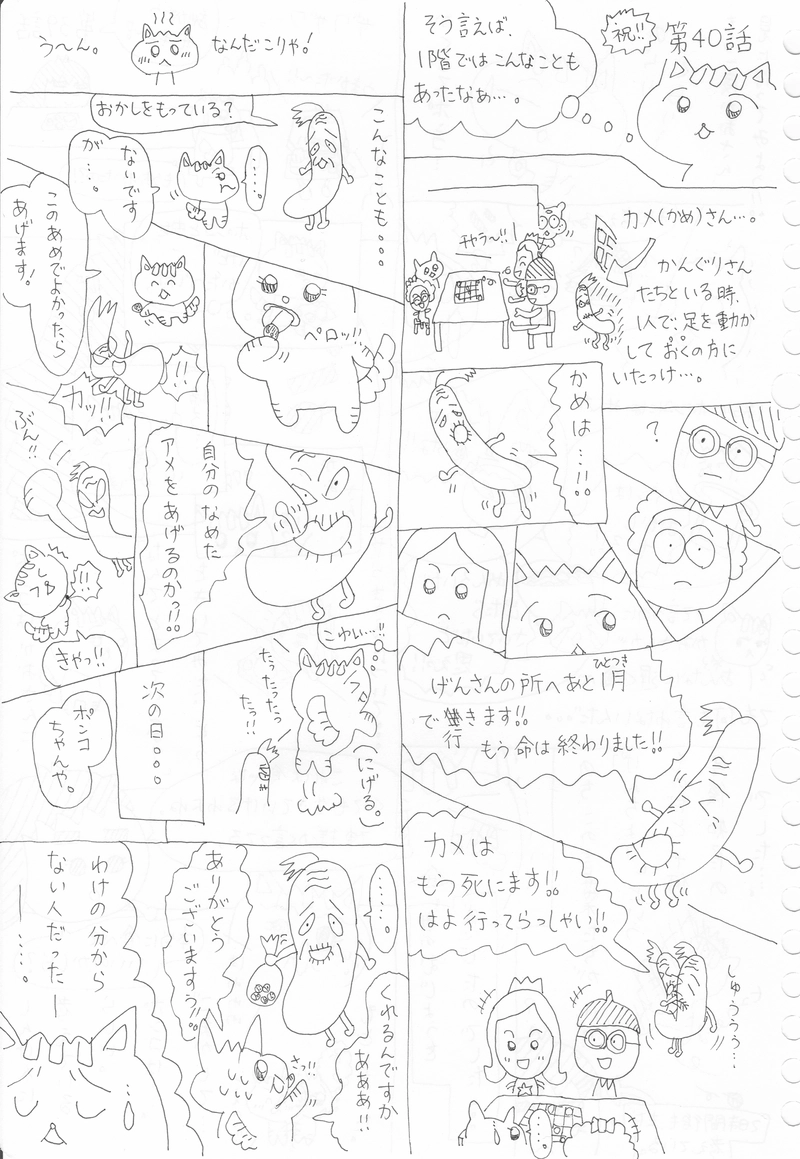 祝!!
第40話
そう言えば、
1階ではこんなことも
あったなぁ…。
カメ(かめ)さん…。
かんぐりさん
たちといる時、
1人で足を動か
して おくの方に
いたっけ…。
チャラ〜!!
かめは…!!。
?
ひとつき
げんさんの所へあと1月
で行きます!!
もう命は終わりました!!
カメは
もう死にます!!
はよ行ってらっしゃい!!
しゅううう…
う〜ん。
なんだこりゃ!
こんなことも。。。
おかしをもっている?
……。
ないです
が…。
ペロッ!!
このあめでよかったら
あげます!
!!
カッ!!
自分のなめた
アメをあげるのかっ!!。
ぶん!!
!!
きゃっ!!
こわい…!!
(にげる。)
たったったっ
たっ!!
次の日。。。。
ポンコ
ちゃんや。
……。
くれるんですか
あああ!!
さっ!!
ありがとう
ございますぅ!!。
わけの分から
ない人だったー
ー……。